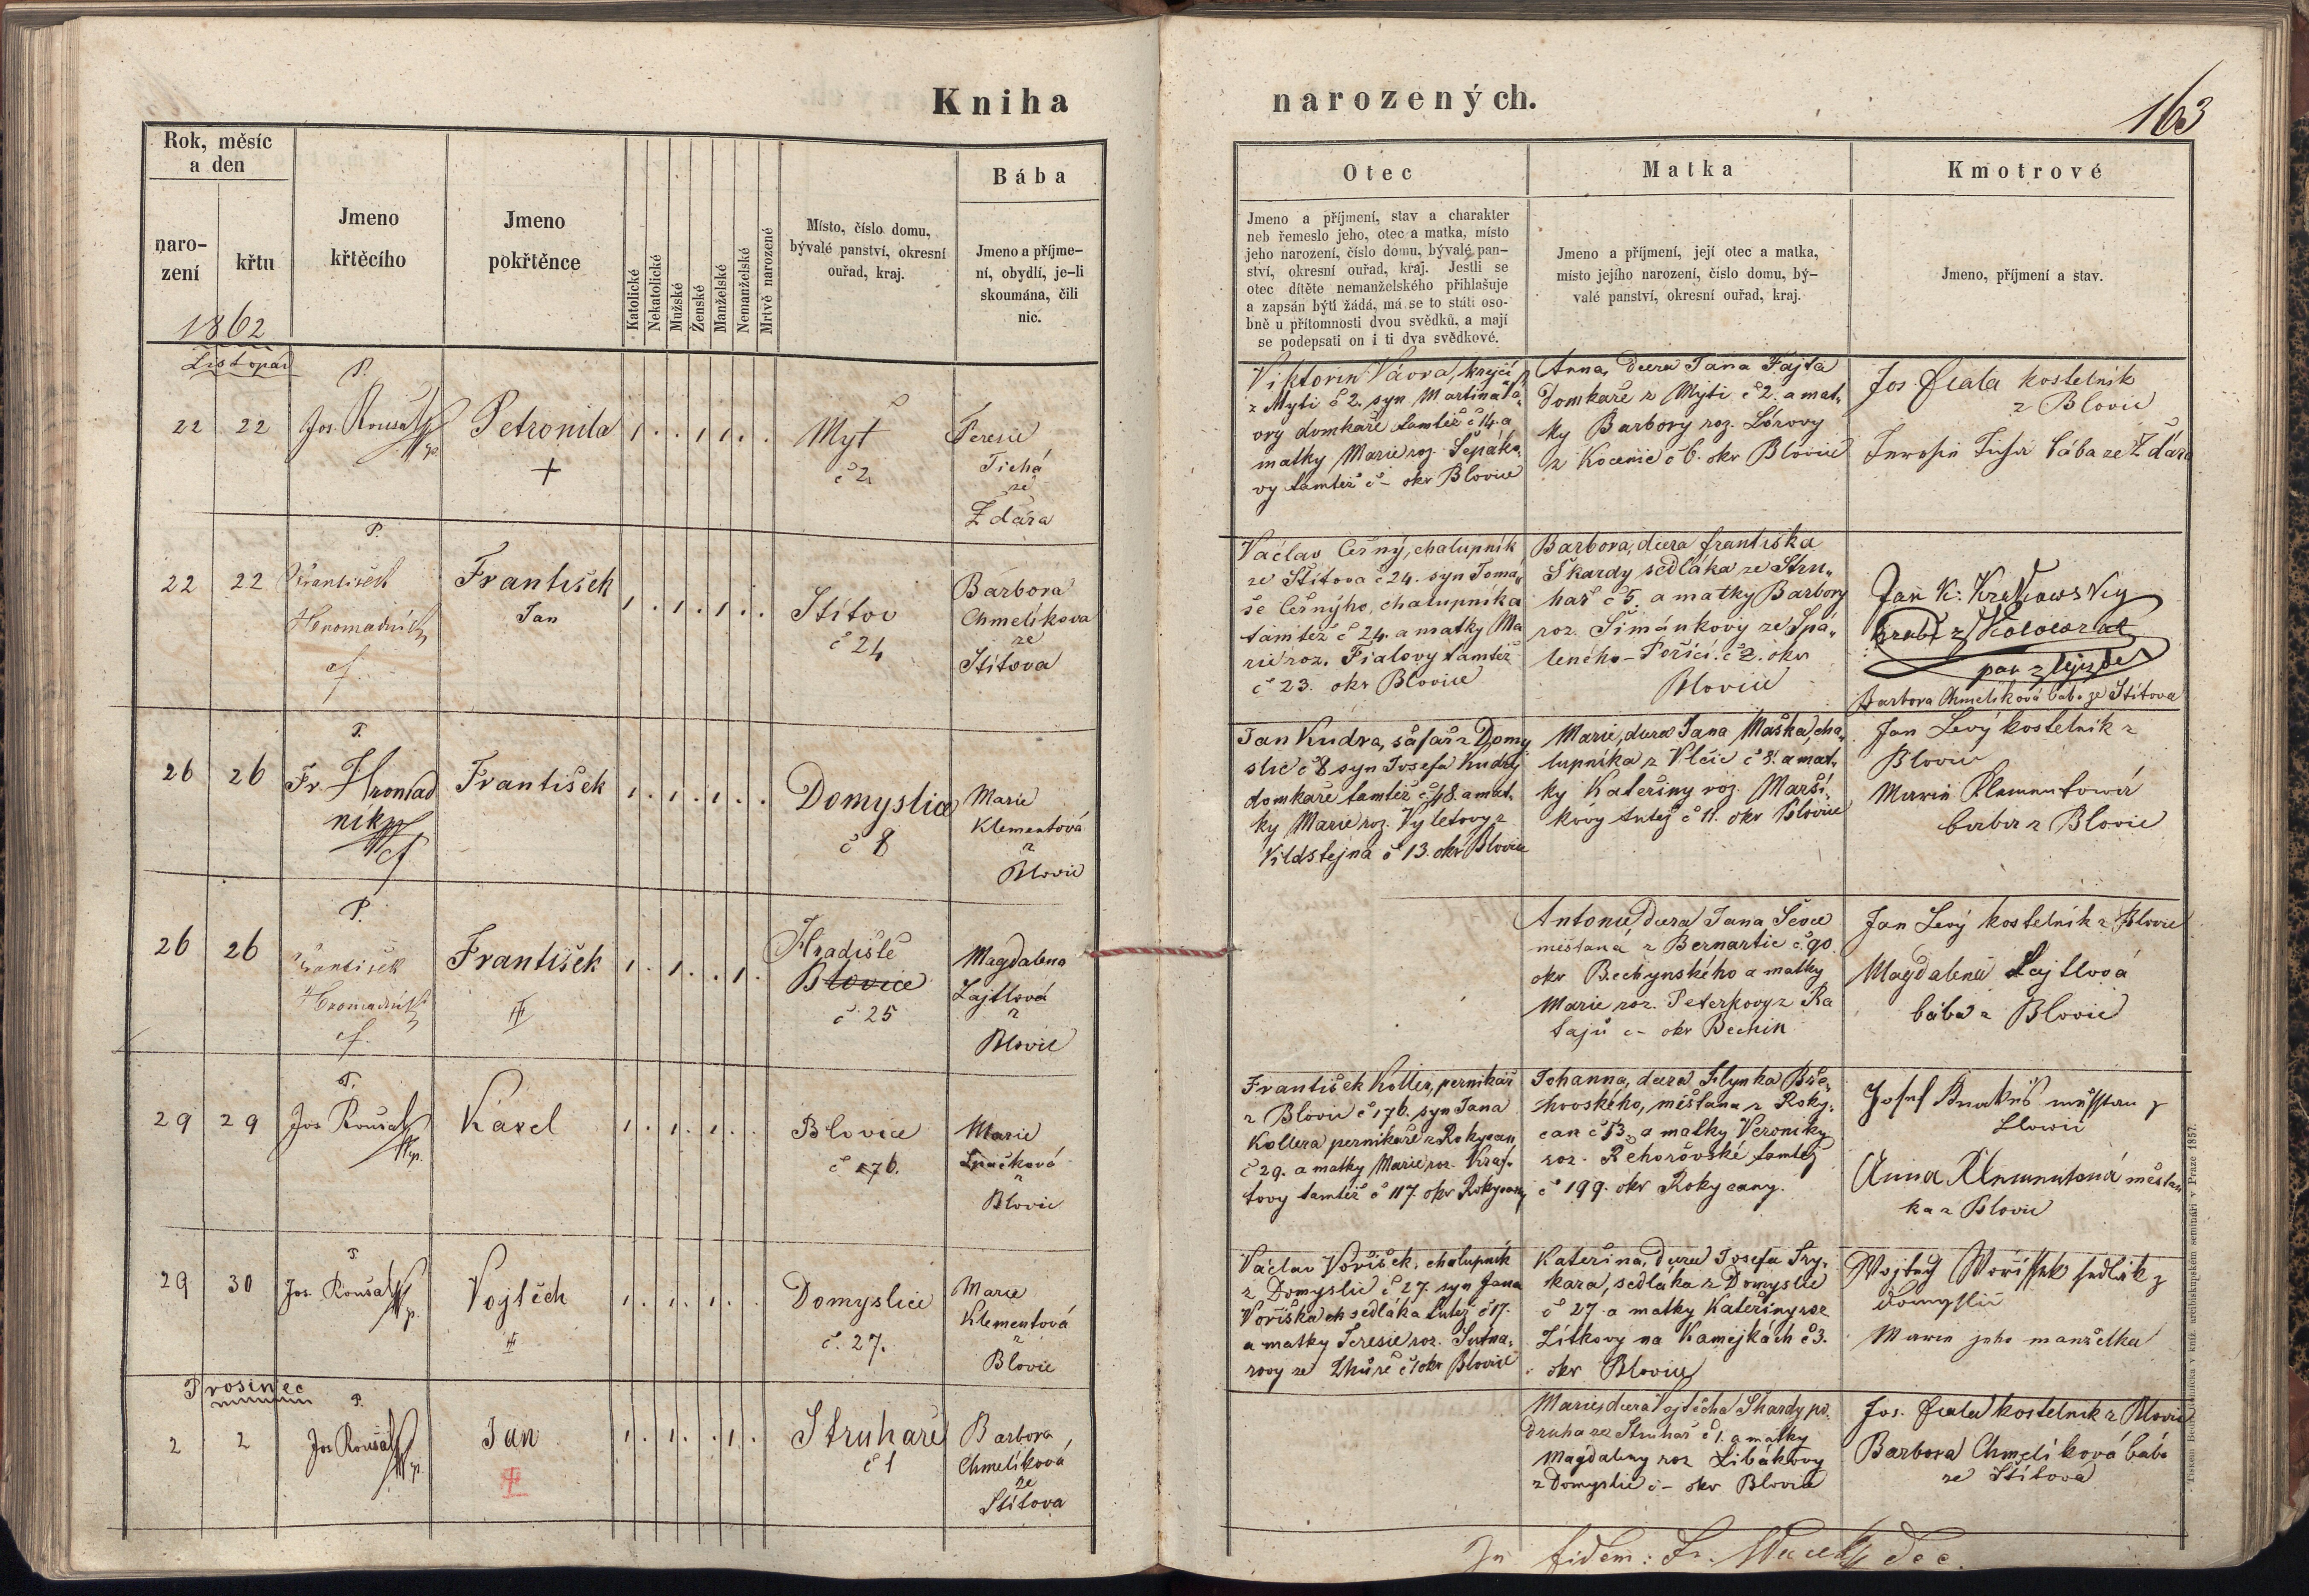 Kniha
narozených.
163
Rok, měsíc
a den
naro-
zení
křtu
1862
Jmeno
křtěcího
Jmeno
pokřtěnce
Katolické
Nekatolické
Mužské
Ženské
Manželské
Nemanželské
Mrtvě narozené
Místo, číslo domu,
bývalé panství, okresní
ouřad, kraj.
Bába
Jmeno a příjme-
ní, obydlí, je-li
skoumána, čili
nic.
Otec
Jmeno a příjmení, stav a charakter
neb řemeslo jeho, otec a matka, místo
jeho narození, číslo domu, bývalé pan-
ství, okresní ouřad, kraj. Jestli se
otec dítěte nemanželského přihlašuje
a zapsán býti žádá, má se to státi oso-
bně u přítomnosti dvou svědků, a mají
se podepsati on i ti dva svědkové.
Matka
Jmeno a příjmení, její otec a matka,
místo jejího narození, číslo domu, bý-
valé panství, okresní ouřad, kraj.
Kmotrové
Jmeno, příjmení a stav.
Listopad
22 22
P.
Jos. Roušal
Petronila
+
1 . . 1 1 . .
Myť
č 2
Teresie
Tichá
ze
Ždára
Viktorin Vávra, krejčí
z Myti č 2. syn Martina Vá„
ory domkaře tamtéž č 14. a
matky Marie roz. Šepáko„
vy tamtéž č – okr Blovice
Anna, dcera Jana Fajta
Domkaře z Myti č 2. a mat„
ky Barbory roz. Lórovy
z Kocenic č 6. okr Blovice
Jos. Fiala kostelník
z Blovic
bába ze Ždára
22 22
P.
František
Hromadník
cf.
František
Jan
1 . 1 . 1 . .
Štítov
č 24
Barbora
Chmelíkova
ze
Štítova
Václav Černý, chalupník
ze Štítova č 24. syn Tomá„
še Černýho, chalupníka
tamtéž č 24. a matky Ma
rie roz. Fialovy tamtéž
č 23. okr Blovice
Barbora, dcera františka
Škardy sedláka ze Stru„
hař č 5. a matky Barbory
roz. Šimánkovy ze Spá„
leného – Poříčí. č 2. okr
Blovice
Jan K. Krakowsky
hrabě z Kolowrat
pan z
Barbora Chmelíková bába ze Štítova
26 26
P.
Fr. Hromad
ník
cf
František
1 . 1 . 1 . .
Domyslice
č 8
Marie
Klementová
z
Blovic
Jan Kudra, šafář z Domy
slic č 8 syn Josefa Kudry
domkaře tamtéž č 48. a mat„
ky Marie roz. Výletovy z
Vildštejna č 13. okr Blovice
Marie, dcera Jana Maška, cha„
lupníka z Vlčic č 8. a mat„
ky Kateřiny roz. Marší„
kovy tutéž č 11. okr Blovice
Jan Levý kostelník z
Blovic
Marie Klementowá
baba z Blovic
26 26
P.
František
Hromadník
cf.
František
1 . 1 . . 1 .
Hradiště
Blovice
č 25
Magdalena
Lajtlová
z
Blovic
Antonie Dcera Jana Ševce
měšťana z Bernartic č 90
okr Bechynského a matky
Marie roz. Peterkovy z Ra
tajů č – okr Bechin
Jan Levý kostelník z Blovic
Magdalena Lajtlová
bába z Blovic
29 29
P.
Jos. Roušal
Karel
1 . 1 . 1 . .
Blovice
č 176.
Marie
Špačková
z
Blovic
František Koller, perníkář
z Blovic č 176. syn Jana
Kollera perníkáře z Rokycan
č 29. a matky Marie roz. Kraf„
tovy tamtéž č 117. okr Rokycany
Johanna, dcera Hynka Bře„
hovského, měšťana z Roky„
can č 53. a matky Veroniky
roz. Řehořovské tamtéž
č 199. okr Rokycany.
Josef
Anna Klementová měšťan
ka z Blovic
29 30
P.
Jos. Roušal
Vojtěch
1 . 1 . 1 . .
Domyslice
č. 27.
Marie
Klementová
z
Blovic
Václav Voříšek, chalupník
z Domyslic č 27. syn Jana
Voříška sedláka tutéž č 17.
a matky Teresie roz. Sutna„
rovy ze Zhůře č 1 okr Blovice
Kateřina, Dcera Josefa Try„
kara, sedláka z Domyslic
č 27. a matky Kateřiny roz
Zítkovy na Kamejkách č 3.
okr Blovice
Wojtěch Woříssek sedlák z
Domyslic
Marie jeho manželka
Prosinec
2 2
P.
Jos Roušal
Jan
1 . 1 . . 1 .
Struhaře
č 1
Barbora
Chmelíková
ze
Štítova
Marie, dcera Vojtěcha Škardy po„
druha ze Struhař č 1. a matky
Magdaleny roz Libákovy
z Domyslic č – okr Blovice
Jos. Fiala kostelník z Blovic
Barbora Chmelíková bába
ze Štítova
In fidem: Fr. dec.
Tiskem Bedř. Rohlíčka v kníž. arcibiskupském semináři v Praze 1857.